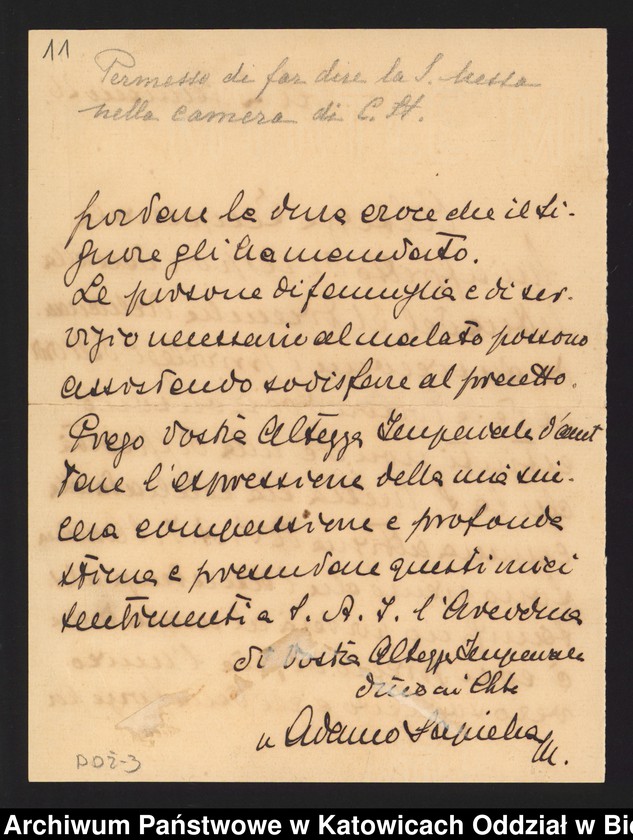 11
Permesso di far dire la S. Messa
nella camera di C. St.
portare la dura croce che il Si-
gnore gli ha mandato.
Le persone di famiglia e di ser-
vizio necessario al malato possono
assistendo sodisfare al precetto.
Prego Vostra Altezza Imperiale d'accet
tare l'espressione della mia sin-
cera compassione e profonda
stima e presentare questi miei
sentimenti a S. A. I. l'Arciduca
di Vostra Altezza Imperiale
Adamo Sapieha
DDŻ-3
Archiwum Państwowe w Katowicach Oddział w Bie